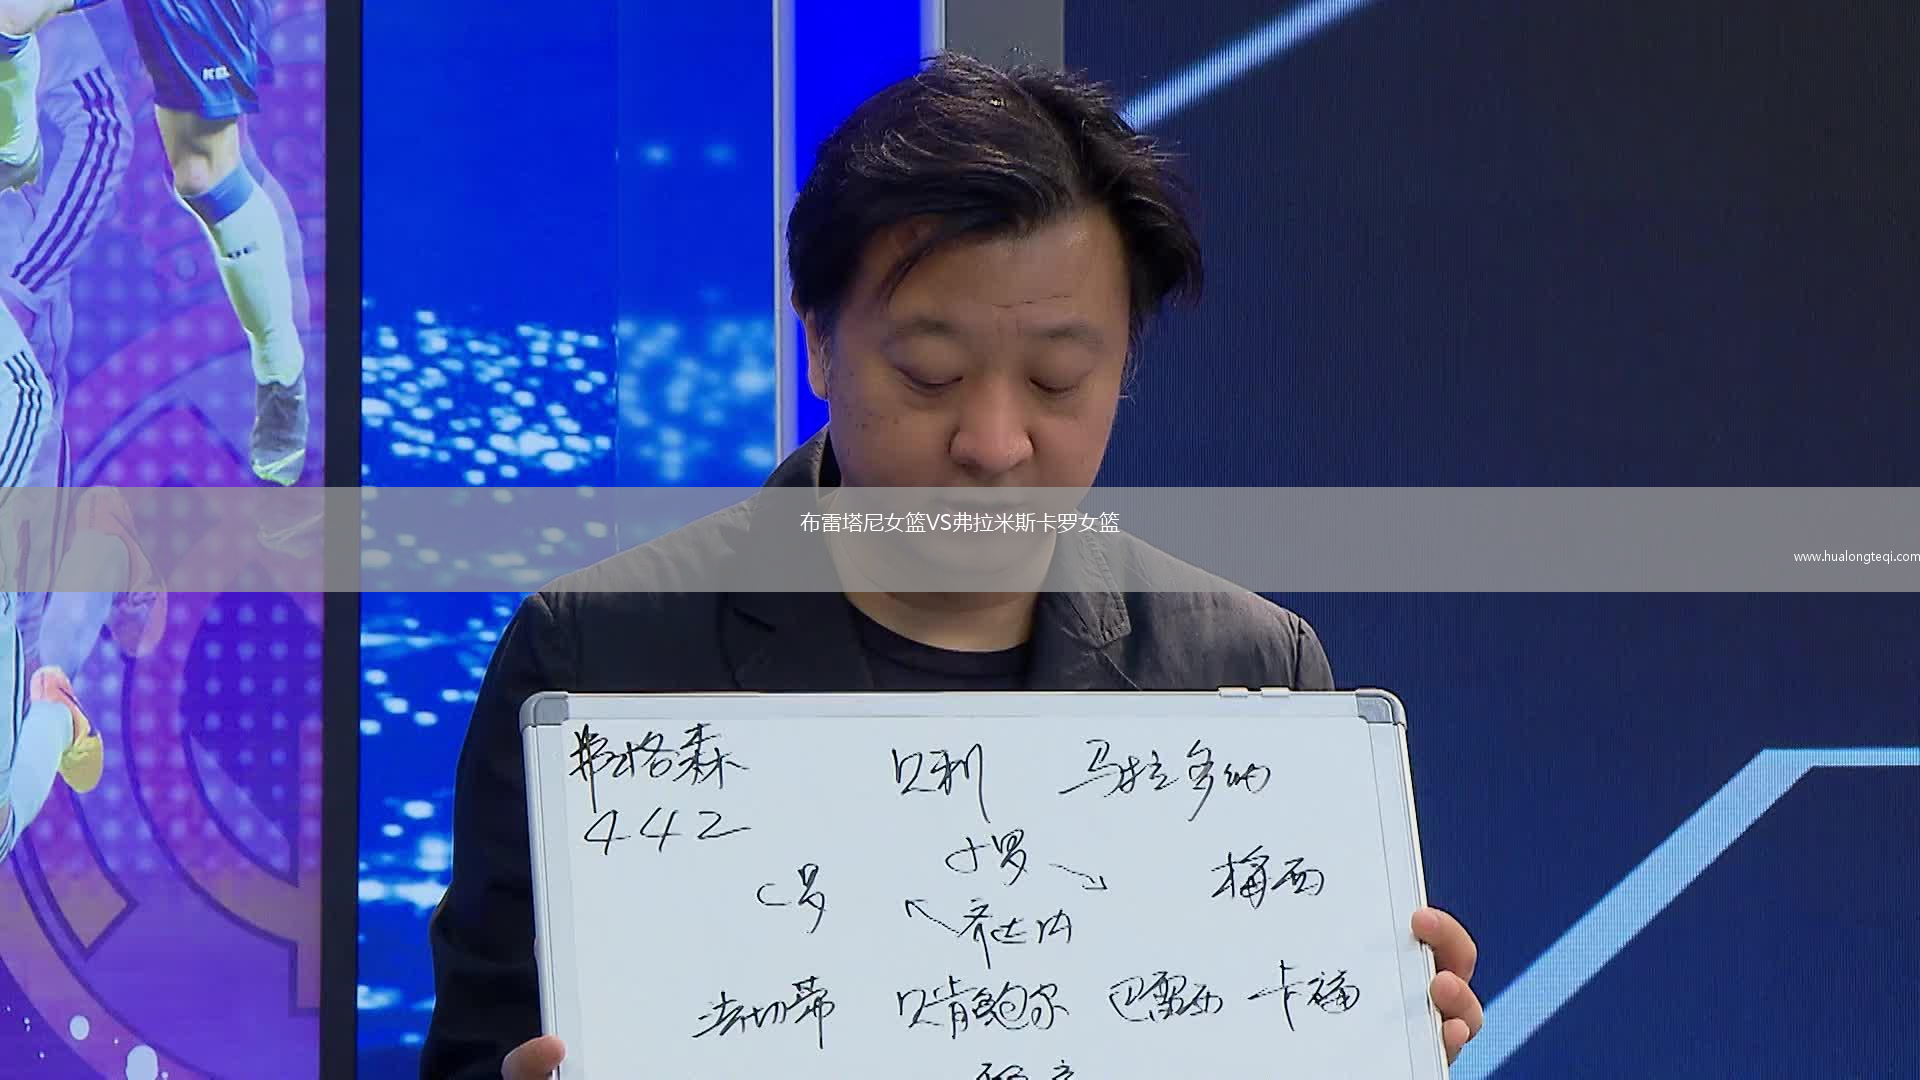 布雷塔尼女篮VS弗拉米斯卡罗女篮
www.hualongteqi.com
弗格森 贝利 马拉多纳
442
小罗
C罗 梅西
齐达内
法切蒂 贝肯鲍尔 巴雷西 卡福